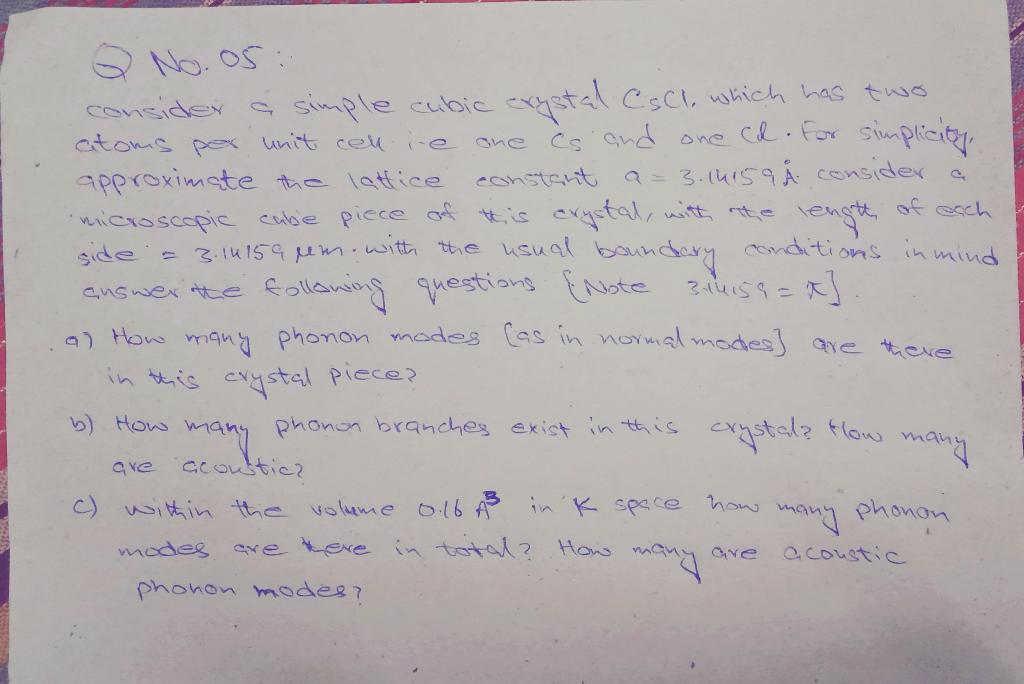 Q No. 05 :
consider a simple cubic crystal CsCl. which has two
atoms per unit cell i-e one Cs and one Cl. For simplicity,
approximate the lattice constant a = 3.14159 Å. consider a
microscopic cube piece of this crystal, with the length of each
side = 3.14159 μm. with the usual boundary conditions in mind
answer the following questions [Note 3.14159 = π].
a) How many phonon modes [as in normal modes] are there
in this crystal piece?
b) How many phonon branches exist in this crystal? How many
are acoustic?
c) within the volume 0.16 Å³ in K space how many phonon
modes are there in total? How many are acoustic
phonon modes?